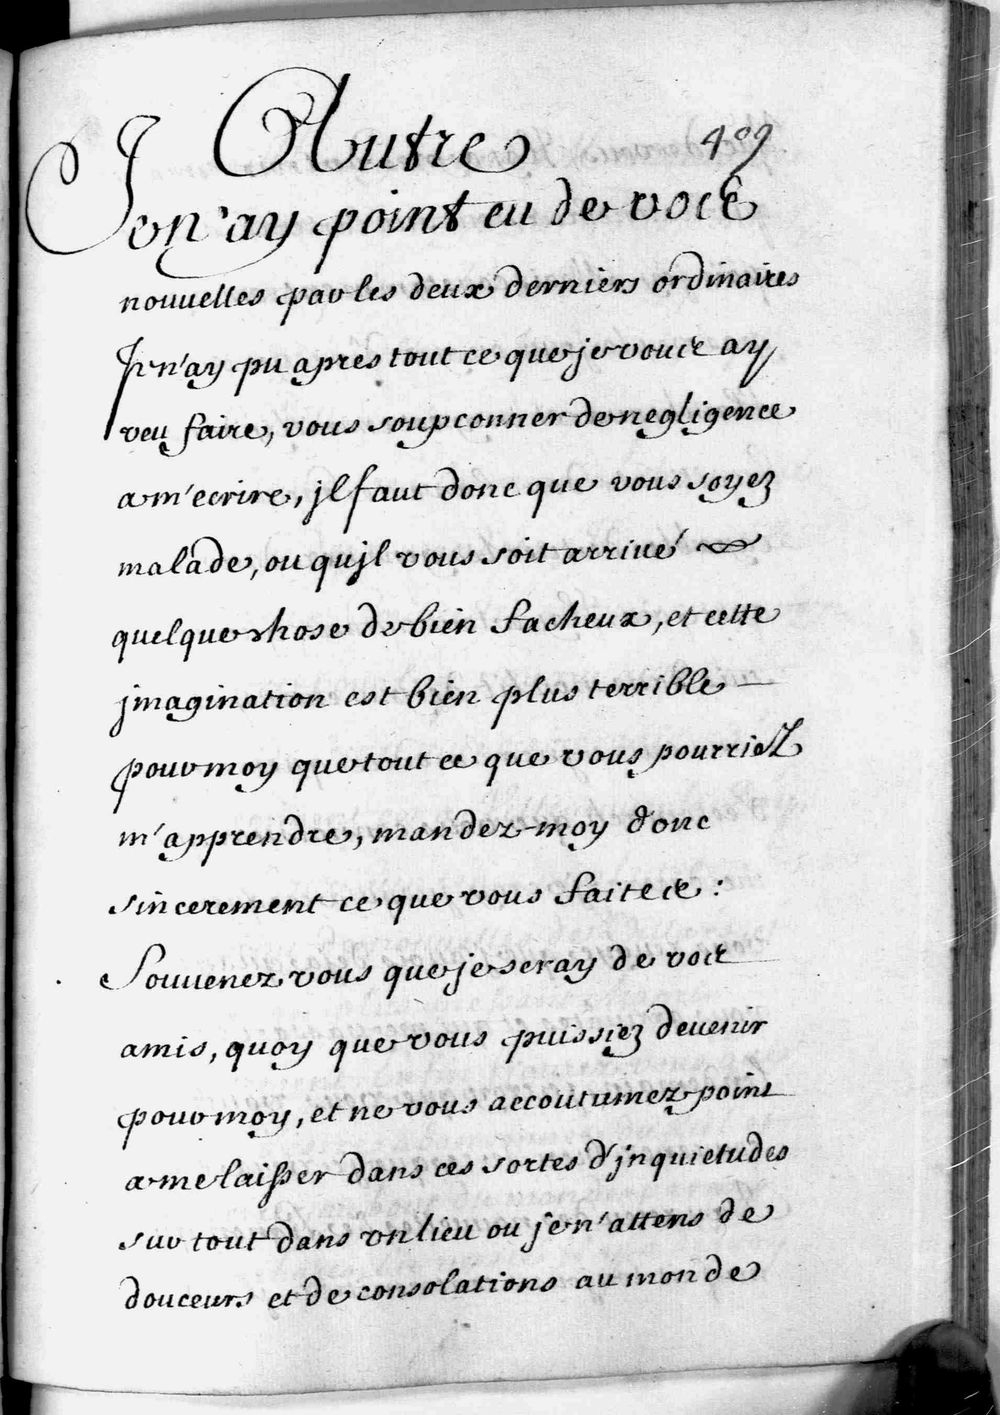 Autre
489
Je n'ay point eu de voce
nouvelles par les deux derniers ordinaires
Je n'ay pu apres tout ce que je vouce ay
veu faire, vous soupconner de negligence
a m'ecrire, jl faut donc que vous soyez
malade, ou qujl vous soit arriué
quelque chose de bien facheux, et cette
jmagination est bien plus terrible
pour moy que tout ce que vous pourriez
m'apprendre, mandez-moy donc
sincerement ce que vous faitece :
Souuenez vous que je seray de voce
amis, quoy que vous puissiez deuenir
pour moy, et ne vous accoutumez point
a me laisser dans ces sortes d'jnquietudes
sur tout dans vn lieu ou je n'attens de
douceurs et de consolations au monde